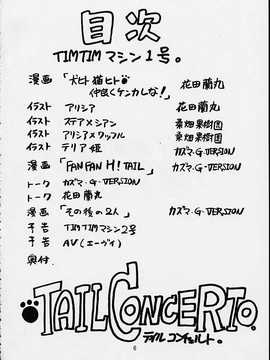 目次
TIMTIMマシン1号。
漫画 「犬ヒト猫ヒト 仲良くケンカしな!」 花田蘭丸
イラスト アリシア 花田蘭丸
イラスト ステア×シアン 桑畑果樹園
イラスト アリシア×ワッフル 桑畑果樹園
イラスト テリア姫 カズマ・G-VERSION
漫画 「FAN FAN H! TAIL」 カズマ・G-VERSION
トーク カズマ・G-VERSION
トーク 花田蘭丸
漫画 「その後の2人」 カズマ・G-VERSION
予告 TIMTIMマシン2号
予告 AV(エーヴィ)
奥付.
TAIL CONCERTO。
テイル コンチェルト。
6